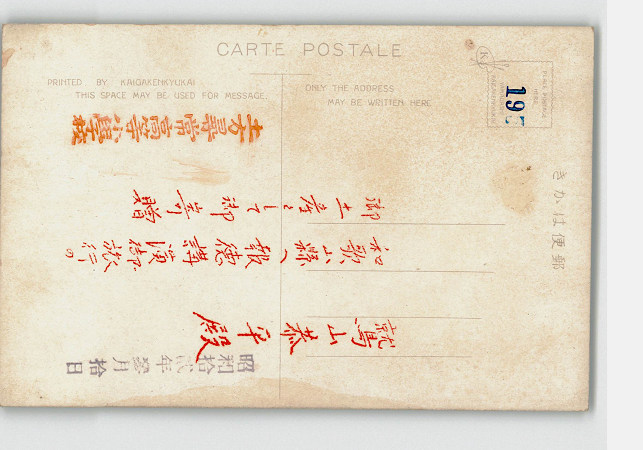 CARTE POSTALE
PRINTED BY KAIGAKENKYUKAI
THIS SPACE MAY BE USED FOR MESSAGE.
ONLY THE ADDRESS
MAY BE WRITTEN HERE
195
きかは便郵
土方尋常高等小學校
御土産として御寄贈
和歌山縣へ報徳講演御旅行の
鷲山恭平殿
昭和拾貳年 月拾日